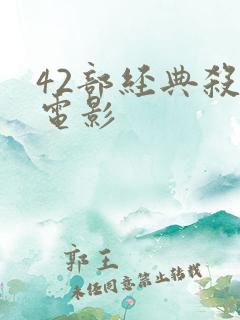 42部經典殺
電影
郭王
未經同意禁止轉載